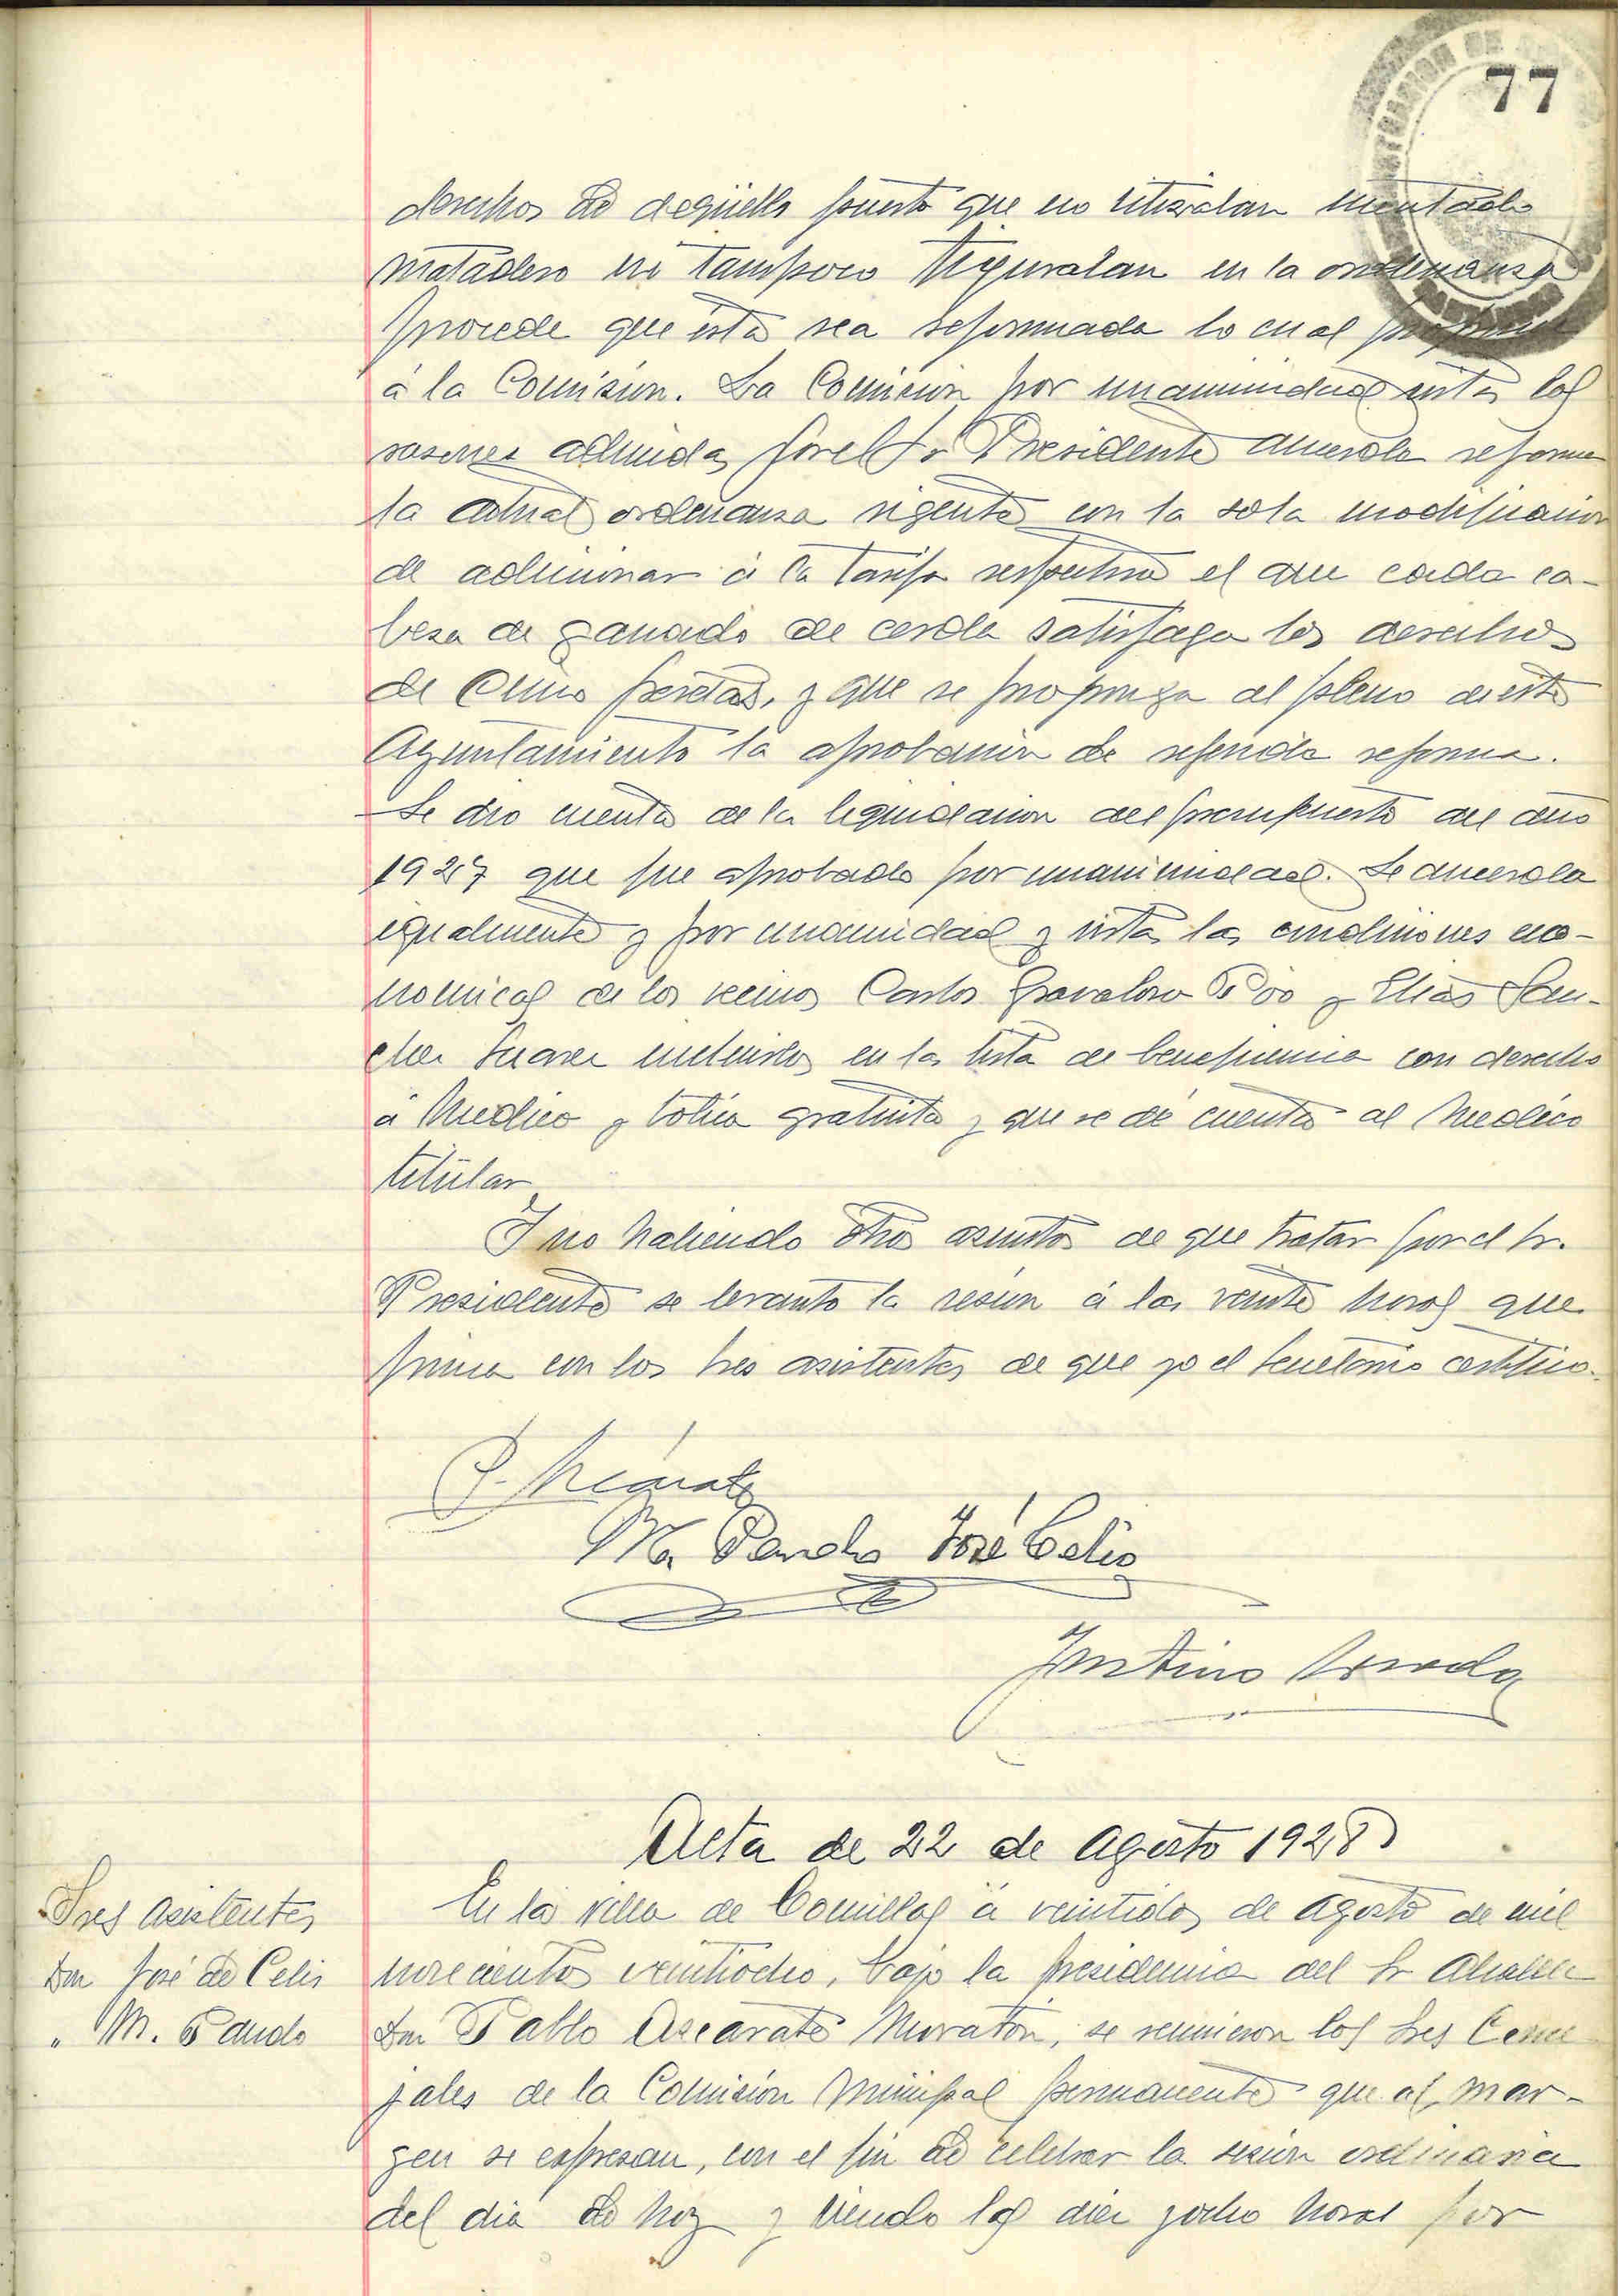 77
derechos de degüello puesto que no utilizaban mentado
matadero ni tampoco figuraban en la ordenanza
procede que ésta sea reformada lo cual propone
á la Comisión. La Comisión por unanimidad vistas las
razones aducidas por el Sr Presidente acuerda reformar
la actual ordenanza vigente con la sola modificacion
de adicionar á la tarifa respectiva el que cada ca-
beza de ganado de cerda satisfaga los derechos
de cinco pesetas, y que se proponga al pleno de este
Ayuntamiento la aprobacion de referida reforma.
Se dio cuenta de la liquidacion del presupuesto del año
1927 que fue aprobado por unanimidad. Se acuerda
igualmente y por unanimidad y vistas las condiciones eco-
nomicas de los vecinos Carlos Poo y Elias San-
chez Suarez incluirlos en la lista de beneficencia con derecho
á Medico y botica gratuita y que se dé cuenta al Medico
titular
Y no habiendo otros asuntos de que tratar por el Sr.
Presidente se levanto la sesion á las veinte horas que
firma con los Sres asistentes de que yo el Secretario certifico.
P. Azcárate
M. Pando José Celis
Justino
Acta de 22 de Agosto 1928
Sres asistentes
Don José de Celis
" M. Pando
En la villa de Comillas á veintidos de Agosto de mil
novecientos veintiocho, bajo la presidencia del Sr Alcalde
Don Pablo Azcarate Moratón, se reunieron los Sres Conce
jales de la Comisión Municipal permanente que al mar-
gen se expresan, con el fin de celebrar la sesion ordinaria
del dia de hoy y siendo las diez y ocho horas por